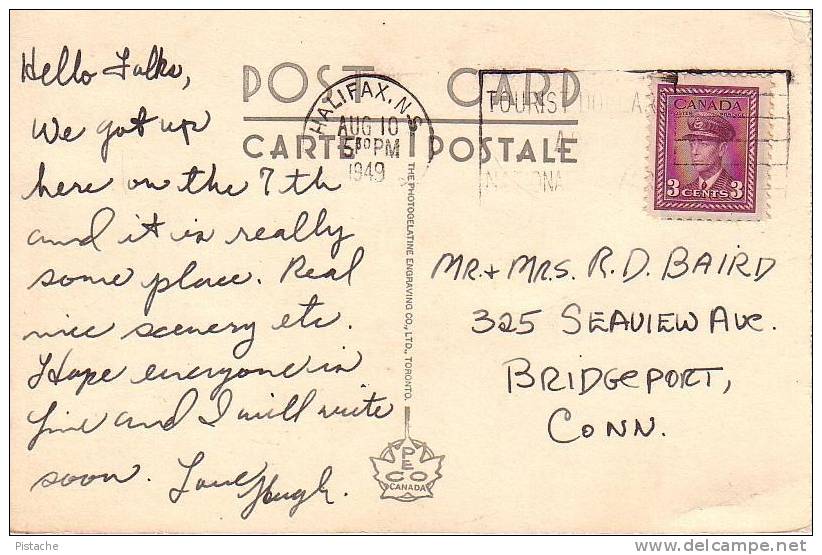 POST CARD
CARTE POSTALE
Hello Folks,
We got up
here on the 7th
and it is really
some place. Real
nice scenery etc.
Hope everyone is
fine and I will write
soon. Love Hugh.
HALIFAX, N.S.
AUG 10
5 30 PM
1949
TOURIST DOLLAR
NATIONA
CANADA
3 CENTS 3
THE PHOTOGELATINE ENGRAVING CO., LTD., TORONTO.
PECO
CANADA
MR. + MRS. R. D. BAIRD
325 SEAVIEW AVE.
BRIDGEPORT,
CONN.
Pistache
delcampe.net